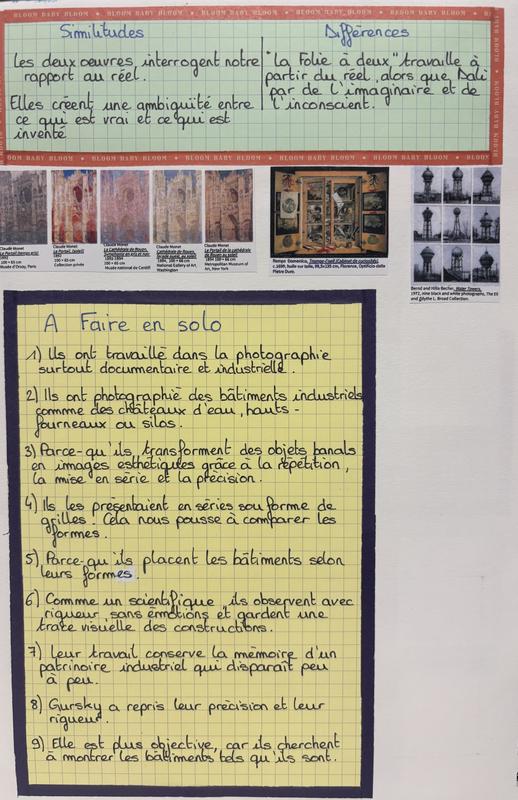 BLOOM BABY BLOOM • BLOOM BABY BLOOM • BLOOM BABY BLOOM • BLOOM BABY BLOOM • BLOOM BABY BLOOM
Similitudes
Les deux oeuvres interrogent notre
rapport au réel.
Elles créent une ambiguïté entre
ce qui est vrai et ce qui est
inventé
Différences
"La Folie à deux" travaille à
partir du réel, alors que Dali
par de l'imaginaire et de
l'inconscient.
BLOOM BABY BLOOM • BLOOM BABY BLOOM • BLOOM BABY BLOOM • BLOOM BABY BLOOM • BLOOM BABY BLOOM
Claude Monet
Le Portail (temps gris)
1892
100 × 65 cm
Musée d'Orsay, Paris
Claude Monet
Le Portail (soleil)
1892
100 × 65 cm
Collection privée
Claude Monet
La Cathédrale de Rouen,
Symphonie en gris et rose
1892-1894
100 × 65 cm
Musée national de Cardiff
Claude Monet
La Cathédrale de Rouen,
façade ouest, au soleil
1894, 100 × 66 cm
National Gallery of Art
Washington
Claude Monet
Le Portail de la cathédrale
de Rouen au soleil
1894 100 × 66 cm
Metropolitan Museum of
Art, New York
Remps Domenico, Trompe-l'oeil (Cabinet de curiosités),
c.1689, huile sur toile, 99,5×135 cm, Florence, Opificio delle
Pietre Dure.
Bernd and Hilla Becher, Water Towers,
1972, nine black and white photographs, The Eli
and Edythe L. Broad Collection.
A Faire en solo
1) Ils ont travaillé dans la photographie
surtout documentaire et industrielle.
2) Ils ont photographié des bâtiments industriels
commme des châteaux d'eau, hauts-
fourneaux ou silos.
3) Parce-qu'ils transforment des objets banals
en images esthétiques grâce à la répétition,
la mise en série et la précision.
4) Ils les présentaient en séries sou forme de
grilles. Cela nous pousse à comparer les
formes.
5) Parce-qu'ils placent les bâtiments selon
leurs formes.
6) Comme un scientifique, ils observent avec
rigueur, sans émotions et gardent une
trace visuelle des constructions.
7) Leur travail conserve la mémoire d'un
patrinoire industriel qui disparaît peu
à peu.
8) Gursky a repris leur précision et leur
rigueur.
9) Elle est plus objective, car ils cherchent
à montrer les bâttiments tels qu'ils sont.